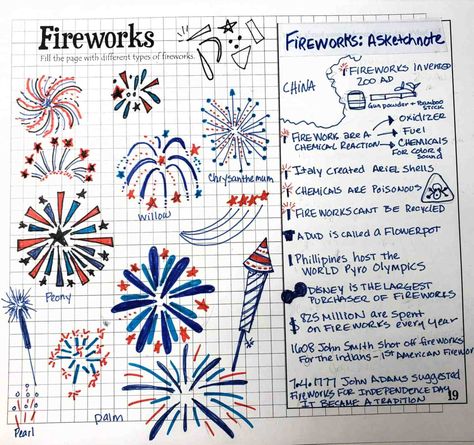 Fireworks
Fill the page with different types of fireworks.
Chrysanthemum
Willow
Peony
Pearl
Palm
FIREWORKS: A SKETCHNOTE
FIREWORKS INVENTED
200 AD
CHINA
GUN POWDER + BAMBOO
STICK
OXIDIZER
FIREWORK ARE A
CHEMICAL REACTION
FUEL
CHEMICALS
FOR COLOR &
SOUND
ITALY CREATED ARIEL SHELLS
CHEMICALS ARE POISONOUS
FIREWORKS CANT BE RECYCLED
A DUD IS CALLED A FLOWERPOT
PHILLIPINES HOST THE
WORLD PYRO OLYMPICS
DISNEY IS THE LARGEST
PURCHASER OF FIREWORKS
$25 MILLION ARE SPENT
ON FIREWORKS EVERY YEAR
1608 JOHN SMITH SHOT OFF FIREWORKS
FOR THE INDIANS - 1ST AMERICAN FIREWOR
1777 JOHN ADAMS SUGGESTED
FIREWORKS FOR INDEPENDENCE DAY
IT BECAME A TRADITION
19